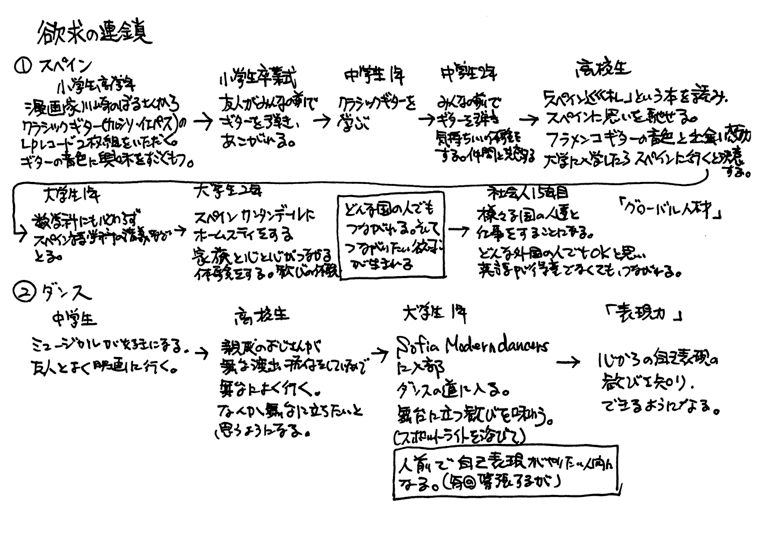 欲求の連鎖
① スペイン
小学生高学年
漫画家川崎のぼるさんから
クラシックギター(ナルシソ・イエペス)の
LPレコード2枚組をいただく。
ギターの音色に興味をすごくもつ。
小学生卒業式
友人がみんなの前で
ギターを弾き、
あこがれる。
中学生1年
クラシックギターを
学ぶ
中学生2年
みんなの前で
ギターを弾き
気持ちいい体験を
する。仲間と共鳴する
高校生
「スペイン巡礼」という本を読み、
スペインに思いを馳せる。
フラメンコギターの音色と出会い感動
大学に入学したらスペインに行くと決意
する。
大学生1年
数学科にもかかわらず
スペイン語学科の講義
とる。
大学生2年
スペイン サンタンデールに
ホームステイをする
家族と心と心がつながる
体験をする。歓びの体験
どんな国の人でも
つながれる。そして
つながりたい欲求
が生まれる
社会人15年目
様々な国の人達と
仕事をすることになる。
どんな外国の人でもOKと思い
英語が得意でなくても、つながれる。
「グローバル人材」
② ダンス
中学生
ミュージカルが好きになる。
友人とよく映画に行く。
高校生
親戚のおじさんが
舞台演出
舞台によく行く。
なんか舞台に立ちたいと
思うようになる。
大学生1年
Sofia Moderndancers
に入部
ダンスの道に入る。
舞台に立つ歓びを味わう。
(スポットライトを浴びて)
人前で自己表現がやりたい人間に
なる。(毎回緊張するが)
「表現力」
心からの自己表現の
歓びを知り、
できるようになる。